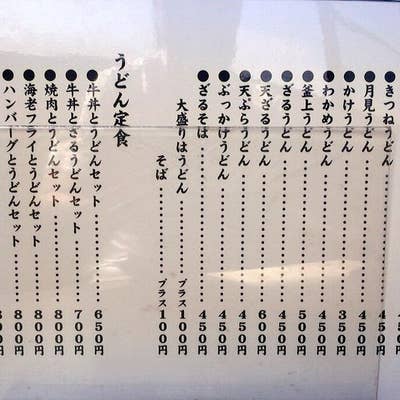 ●きつねうどん……450円
●月見うどん……400円
●かけうどん……350円
●わかめうどん……450円
●釜上うどん……500円
●ざるうどん……450円
●天ざるうどん……600円
●天ぷらうどん……450円
●ぶっかけうどん……450円
●ざるそば……450円
大盛りはうどん……プラス100円
そば……プラス100円
うどん定食
●牛丼とうどんセット……650円
●牛丼とざるうどんセット……700円
●焼肉とうどんセット……800円
●海老フライとうどんセット……800円
●ハンバーグとうどんセット……800円